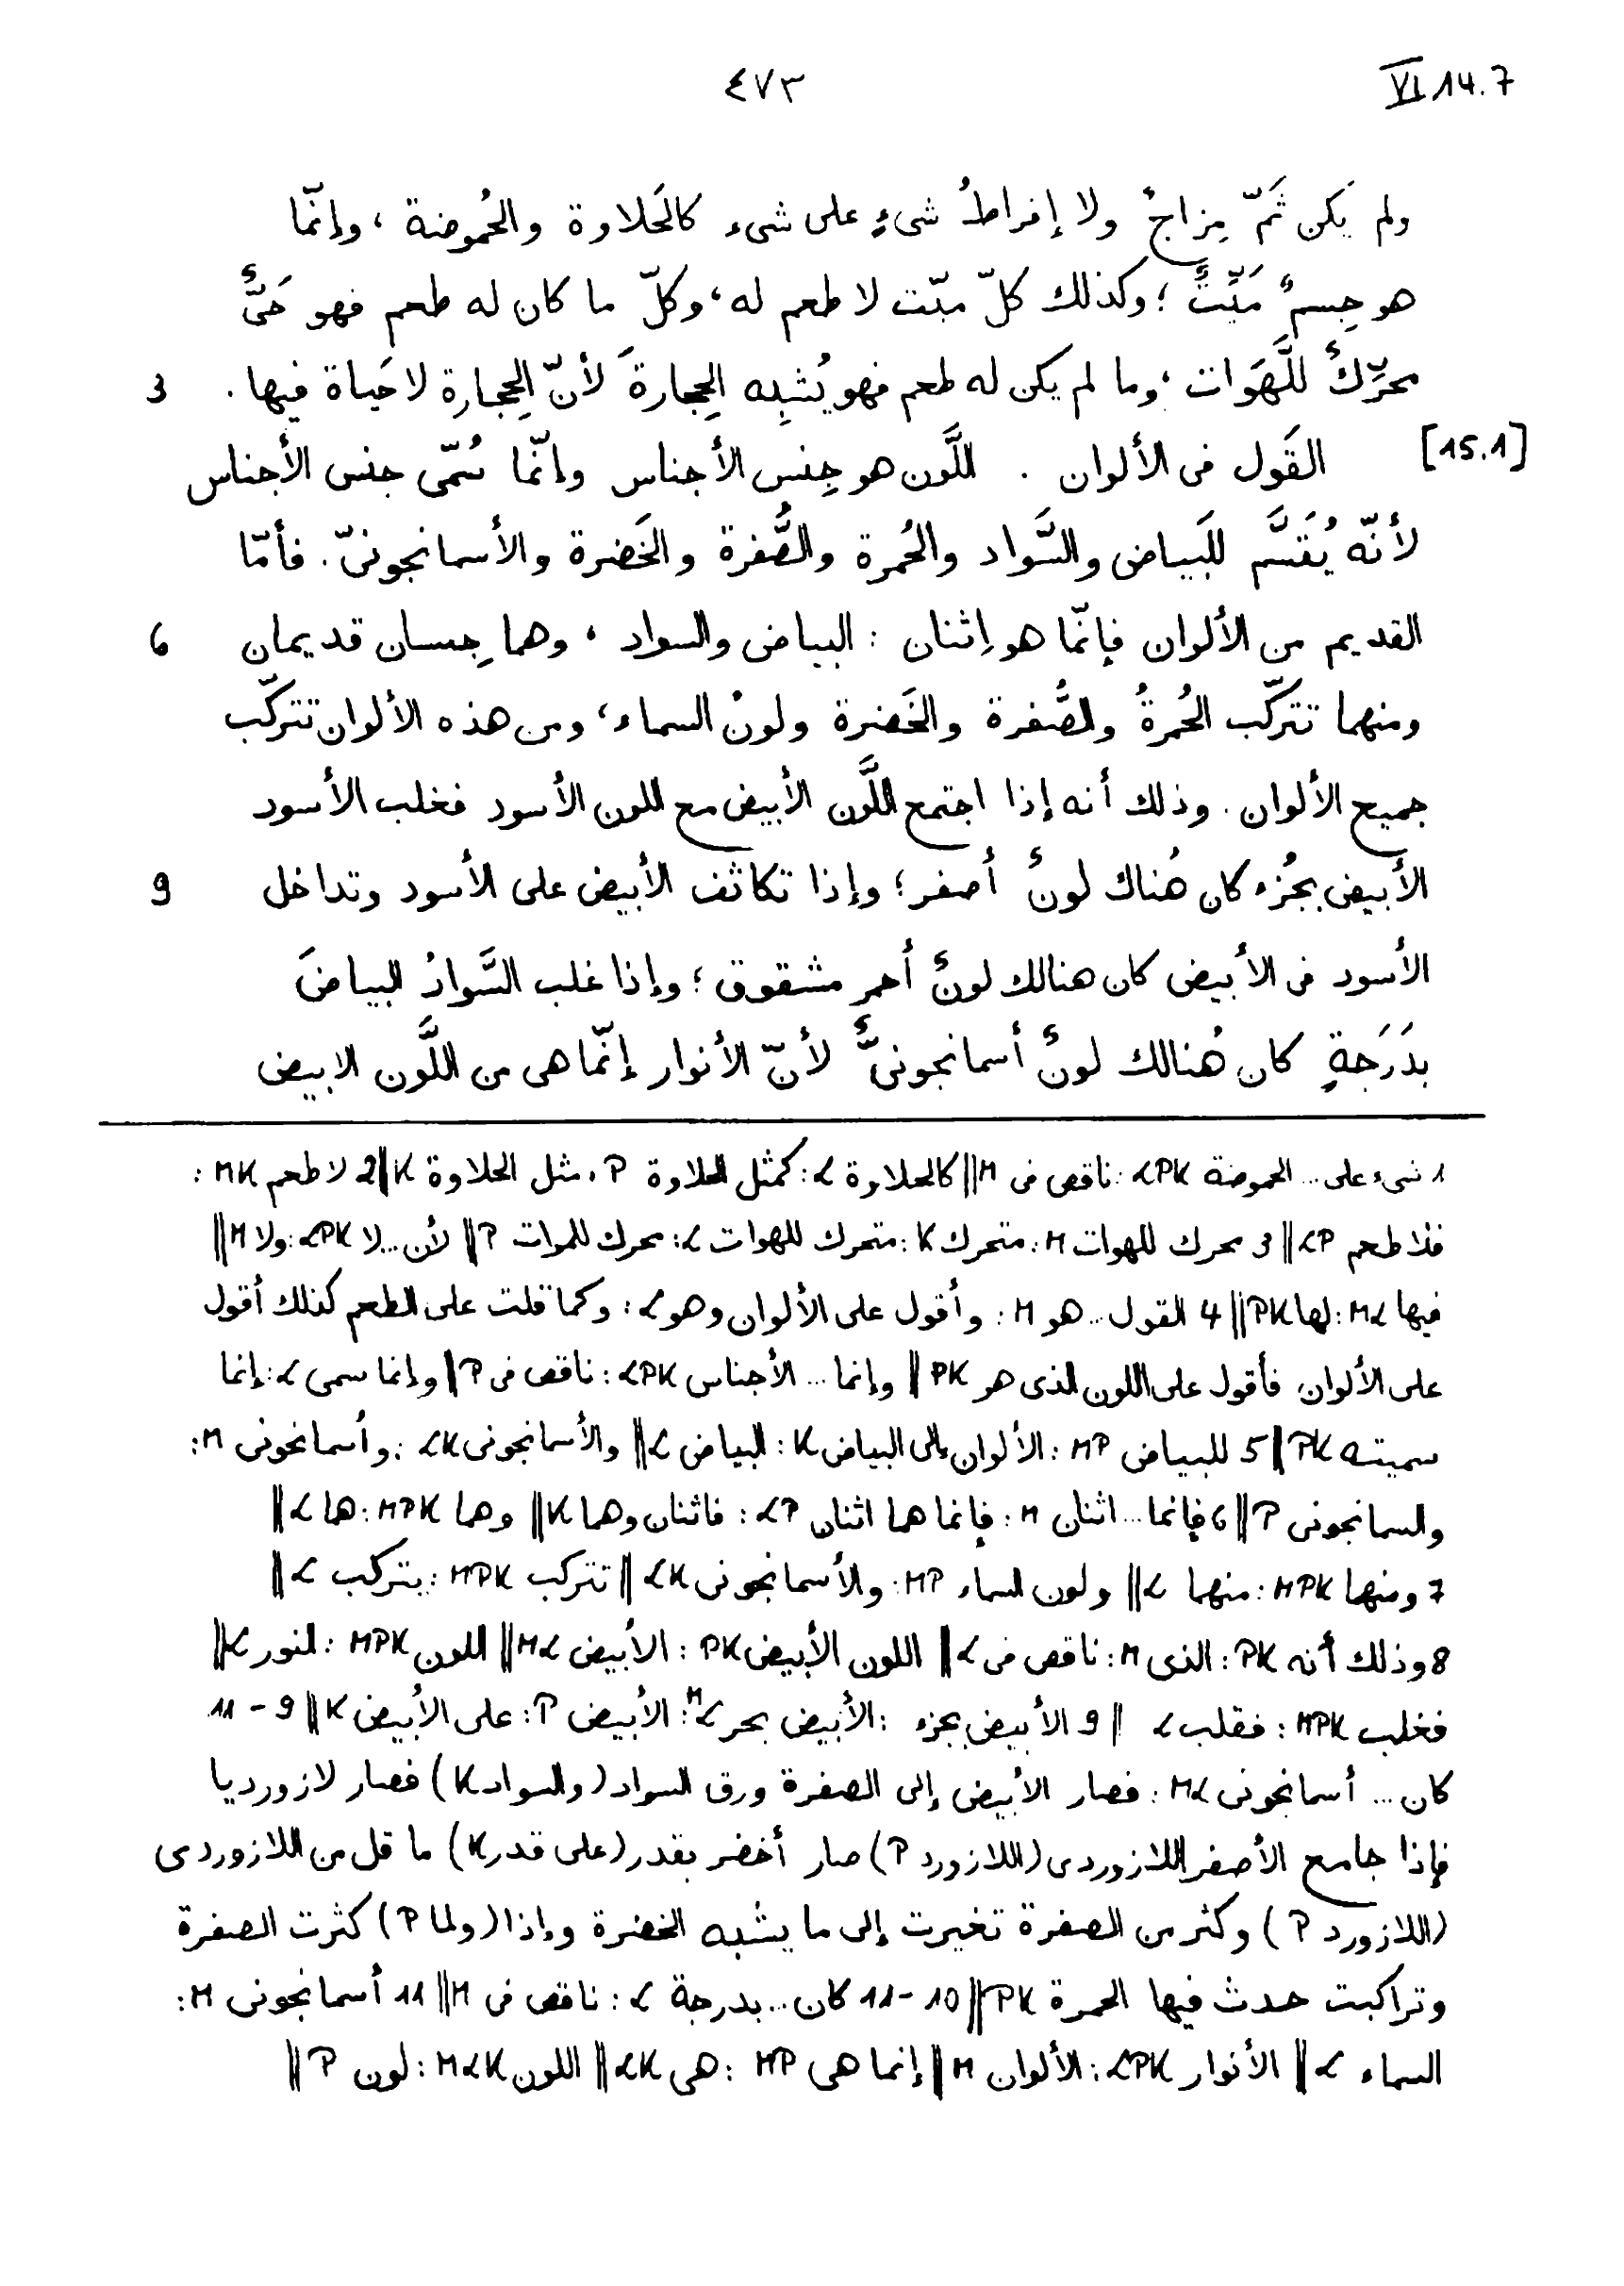 ٤٧٣
VI 14.7
ولم يَكن ثَمّ مِزاجٌ ولا إفراطُ شىءٍ على شىء كالحَلاوة والحُموضة ، وإنّما
هو جِسمٌ مَيِّتٌ ؛ وكذلك كلّ ميّت لا طعم له ، وكلّ ما كان له طعم فهو حَىٌّ
محرِّكٌ للَّهَوات ، وما لم يكن له طعم فهو يُشبِه الحِجارةَ لأنّ الحِجارة لا حَياة فيها . 3
[15.1] القَول فى الألوان . اللَّون هو جِنس الأجناس وإنّما سُمّى جنس الأجناس
لأنّه يُقَسَّم للبَياض والسَّواد والحُمرة والصُّفرة والخَضرة والأسمانجونىّ . فأمّا
القديم من الألوان فإنّما هو اِثنان : البياض والسواد ، وهما جِسمان قديمان 6
ومنهما تتركّب الحُمرةُ والصُّفرة والخَضرة ولونُ السماء ، ومن هذه الألوان تتركّب
جميع الألوان . وذلك أنه إذا اجتمع اللَّون الأبيض مع اللون الأسود فغلب الأسود
الأبيض بجُزء كان هُناك لونٌ أصفر ؛ وإذا تكاثف الأبيض على الأسود وتداخل 9
الأسود فى الأبيض كان هنالك لونٌ أحمر مشقوق ؛ وإذا غلب السَّوادُ البياضَ
بدَرَجةٍ كان هُنالك لونٌ أسمانجونىٌّ لأنّ الأنوار إنّما هى من اللَّون الابيض
1 شىء على ... الحموضة LPK : ناقص فى M || كالحلاوة L : كمثل الحلاوة P ، مثل الحلاوة K || 2 لا طعم MK :
فلا طعم LP || 3 محرك للهوات M : متحرك K : متحرك للهوات L : محرك للموات P || لأن ... لا LPK : ولا M ||
فيها ML : لها PK || 4 القول ... هو M : وأقول على الألوان وهو L : وكما قلت على الطعم كذلك أقول
على الألوان فأقول على اللون الذى هو PK || وإنما ... الأجناس LPK : ناقص فى P || وإنما سمى L : إنما
سميته PK || 5 للبياض MP : الألوان إلى البياض K : البياض L || والأسمانجونى LK : وأسمانجونى M :
والسمانجونى P || 6 فإنما ... اثنان M : فإنما هما اثنان LP : فاثنان وهما K || وهما MPK : هما L ||
7 ومنهما MPK : منهما L || ولون السماء MP : والأسمانجونى LK || تتركب MPK : يتركب L ||
8 وذلك أنه PK : الذى M : ناقص فى L || اللون الأبيض PK : الأبيض ML || اللون MPK : لنور L ||
فغلب MPK : فقلب L || 9 الأبيض بجزء : الأبيض بحر LM : الأبيض P : على الأبيض K || 9 - 11
كان ... أسمانجونى ML : فصار الأبيض إلى الصفرة ورق السواد (والسواد K) فصار لازورديا
فإذا جامع الأصفر اللازوردى (اللازورد P) صار أخضر بقدر (على قدر K) ما قل من اللازوردى
(اللازورد P) وكثر من الصفرة تغيرت إلى ما يشبه الخضرة وإذا (ولما P) كثرت الصفرة
وتراكبت حدث فيها الحمرة PK || 10-11 كان ... بدرجة L : ناقص فى M || 11 أسمانجونى M :
السماء L || الأنوار LPK : الألوان M || إنما هى MP : هى LK || اللون MLK : لون P ||